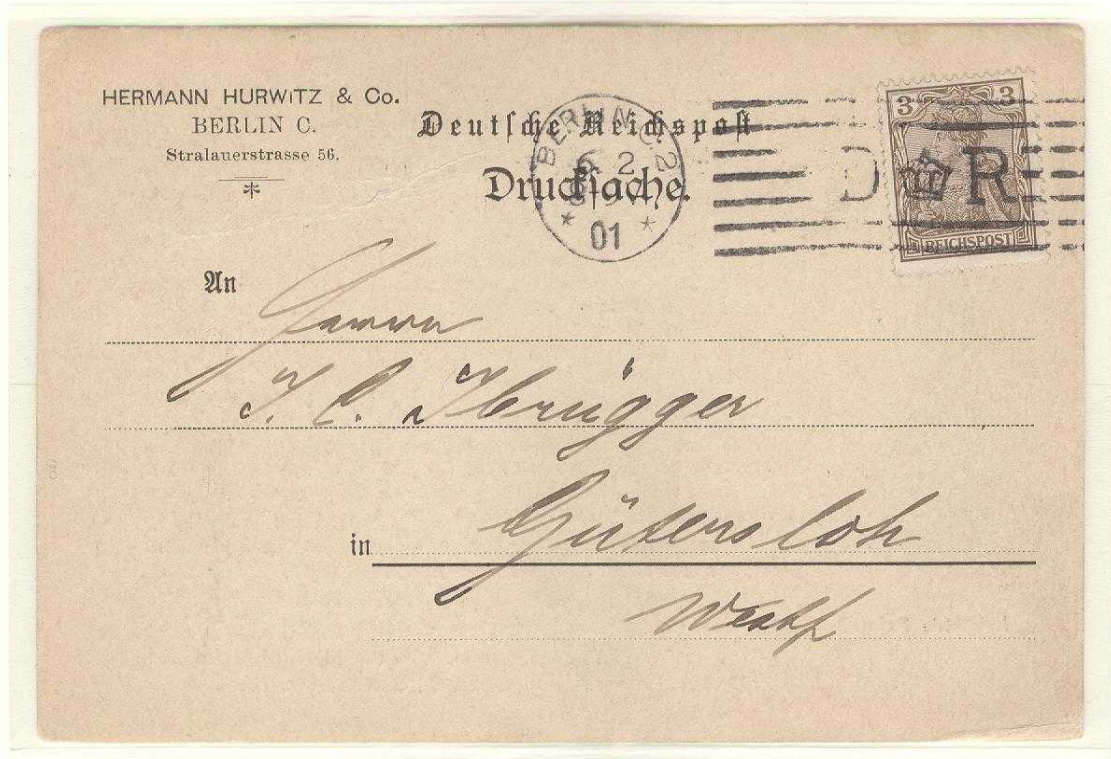 HERMANN HURWITZ & Co.
BERLIN C.
Stralauerstrasse 56.
Deutsche Reichspost
Drucksache.
BERLIN C. 2
6 2
01
D R
3 3
REICHSPOST
An
Herrn
J. C. Ibrügger
in Gütersloh
Westf